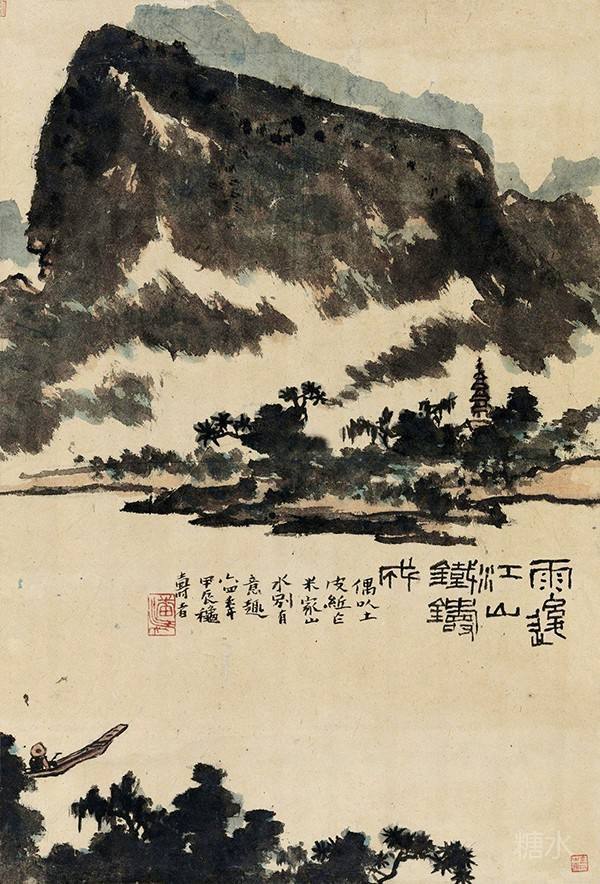 雨後
江山
鐵鑄
成
偶以土
皮紙作
米家山
水別有
意趣
六四年
甲辰穐
壽者
糖水